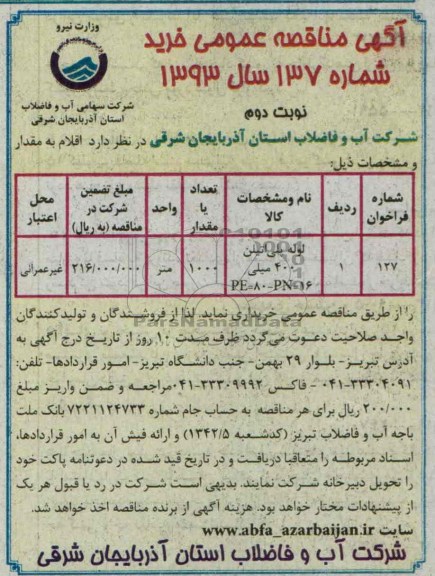 وزارت نیرو
شرکت سهامی آب و فاضلاب
استان آذربایجان شرقی
آگهی مناقصه عمومی خرید
شماره ۱۳۷ سال ۱۳۹۳
نوبت دوم
شرکت آب و فاضلاب استان آذربایجان شرقی در نظر دارد اقلام به مقدار
و مشخصات ذیل:
شماره فراخوان ردیف نام ومشخصات کالا تعداد یا مقدار واحد مبلغ تضمین شرکت در مناقصه (به ریال) محل اعتبار
۱۲۷ ۱ لوله پلی اتیلن ۴۰۰ میلی PE-۸۰-PN-۱۶ ۱۰۰۰ متر ۲۱۶/۰۰۰/۰۰۰ غیرعمرانی
را از طریق مناقصه عمومی خریداری نماید. لذا از فروشندگان و تولیدکنندگان
واجد صلاحیت دعوت می‌گردد ظرف مدت ۱۰ روز از تاریخ درج آگهی به
آدرس تبریز- بلوار ۲۹ بهمن- جنب دانشگاه تبریز- امور قراردادها- تلفن:
۰۴۱-۳۳۳۰۴۰۹۱ - فاکس ۰۴۱-۳۳۳۰۹۹۹۲ مراجعه و ضمن واریز مبلغ
۲۰۰/۰۰۰ ریال برای هر مناقصه به حساب جام شماره ۷۲۲۱۱۲۴۷۳۳ بانک ملت
باجه آب و فاضلاب تبریز (کدشعبه ۱۳۴۲/۵) و ارائه فیش آن به امور قراردادها،
اسناد مربوطه را متعاقبا دریافت و در تاریخ قید شده در دعوتنامه پاکت خود
را تحویل دبیرخانه شرکت نمایند. بدیهی است شرکت در رد یا قبول هر یک
از پیشنهادات مختار خواهد بود. هزینه آگهی از برنده مناقصه اخذ خواهد شد.
سایت www.abfa_azarbaijan.ir
شرکت آب و فاضلاب استان آذربایجان شرقی
ParsNamadData